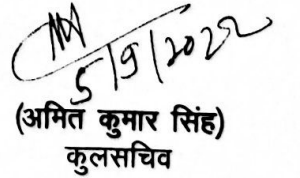 5/9/2022
(अमित कुमार सिंह)
कुलसचिव